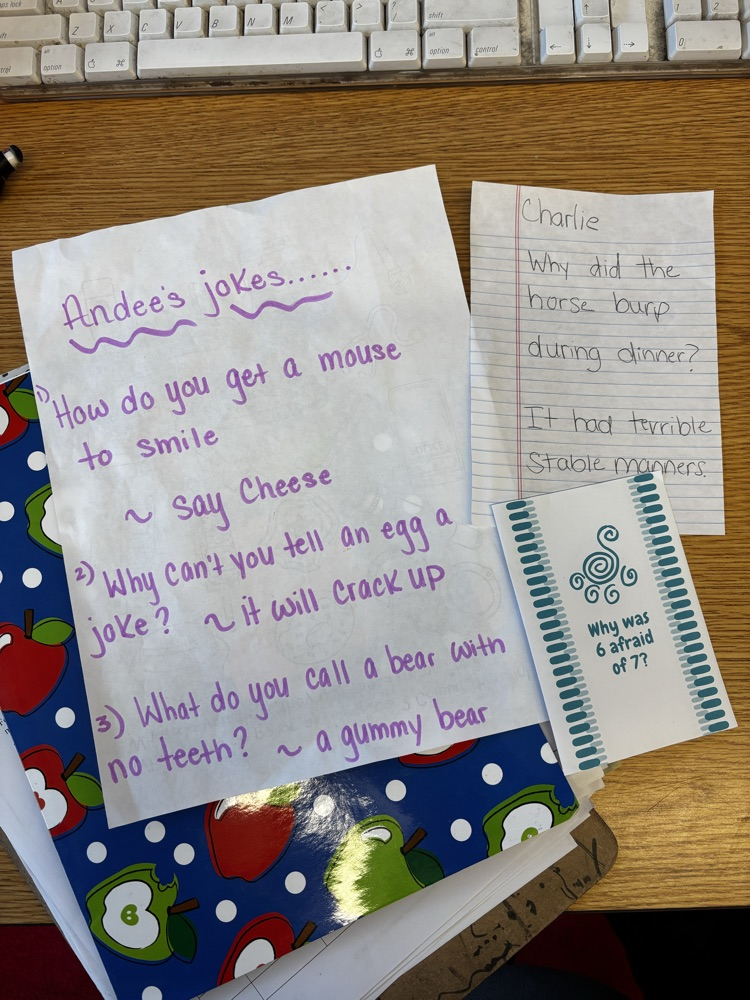 caps lock
shift
Z
X
C
V
B
N
M
<
,
>
.
?
/
shift
1
2
control
option
⌘
⌘
option
control
←
↓
→
0
Andee's jokes......
1) How do you get a mouse
to smile
~ say Cheese
2) Why can't you tell an egg a
joke? ~ it will crack up
3) What do you call a bear with
no teeth? ~ a gummy bear
Charlie
Why did the
horse burp
during dinner?
It had terrible
Stable manners.
Why was
6 afraid
of 7?